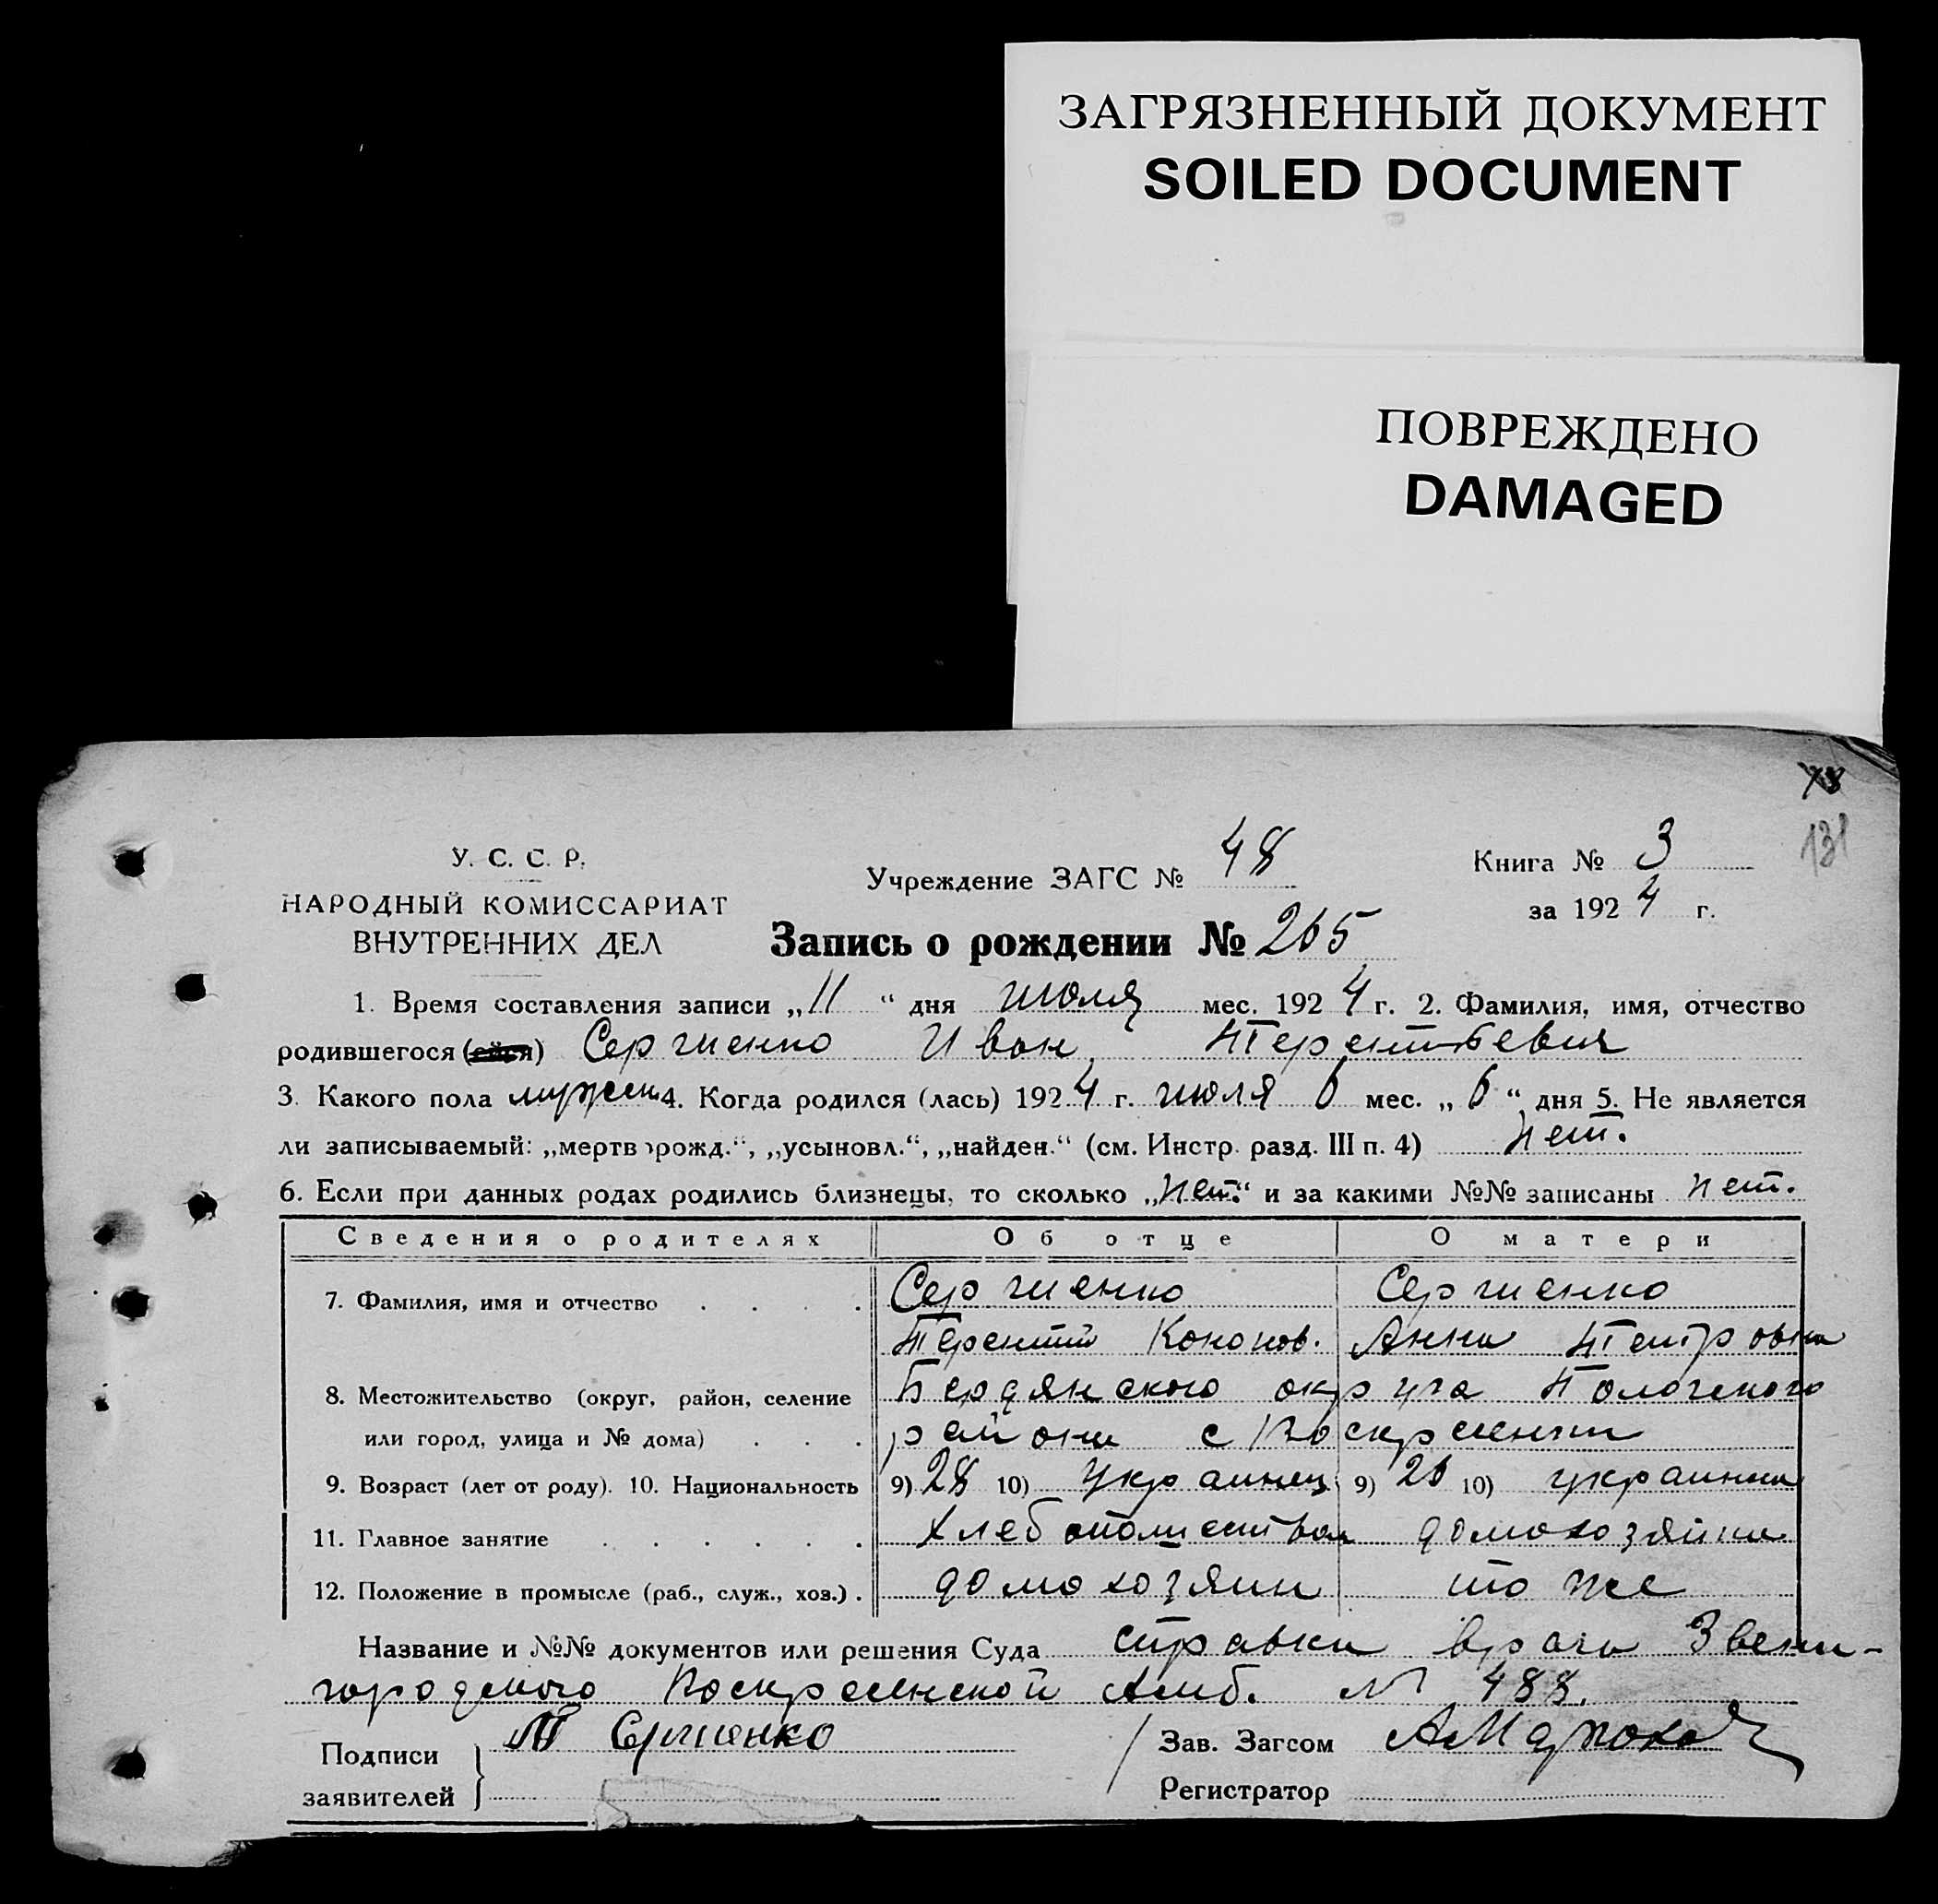 ЗАГРЯЗНЕННЫЙ ДОКУМЕНТ
SOILED DOCUMENT
ПОВРЕЖДЕНО
DAMAGED
131
У. С. С. Р.
НАРОДНЫЙ КОМИССАРИАТ
ВНУТРЕННИХ ДЕЛ
Учреждение ЗАГС № 48
Книга № 3
за 1924 г.
Запись о рождении № 265
1. Время составления записи „11“ дня июля мес. 1924 г. 2. Фамилия, имя, отчество
родившегося Сергиенко Иван Терентьевич
3. Какого пола мужск 4. Когда родился (лась) 1924 г. июля 6 мес. „6“ дня 5. Не является
ли записываемый: „мертворожд.“, „усыновл.“, „найден.“ (см. Инстр. разд. III п. 4) нет.
6. Если при данных родах родились близнецы, то сколько „нет.“ и за какими №№ записаны нет.
Сведения о родителях Об отце О матери
7. Фамилия, имя и отчество Сергиенко Сергиенко
Терентий Кононов. Анна Петровна
8. Местожительство (округ, район, селение Бердянского округа Пологского
или город, улица и № дома) района с Воскресенки
9. Возраст (лет от роду). 10. Национальность 9) 28 10) Украинец 9) 26 10) украинка
11. Главное занятие домохозяйка
12. Положение в промысле (раб., служ., хоз.) домохозяин то же
Название и №№ документов или решения Суда справка врача Звени-
городского Воскресенской Амб. № 488.
Подписи
заявителей Т Сергиенко
Зав. Загсом
Регистратор